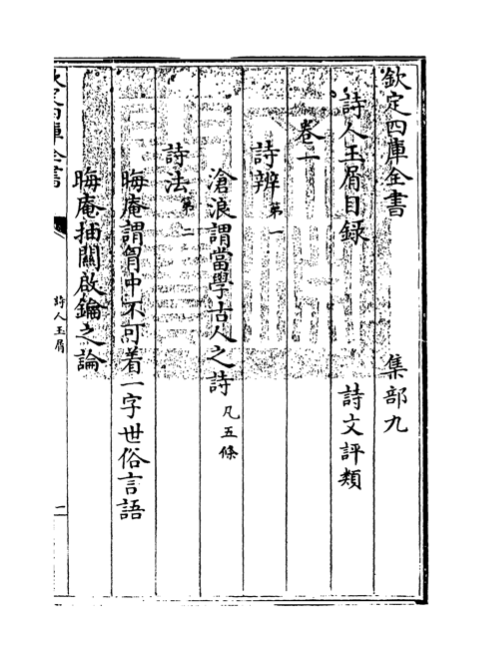 欽定四庫全書　集部九
詩人玉屑目錄　詩文評類
卷一
詩辨第一
滄浪謂當學古人之詩凡五條
詩法第二
晦庵謂胷中不可着一字世俗言語
晦庵抽關啟鑰之論
欽定四庫全書　詩人玉屑　二